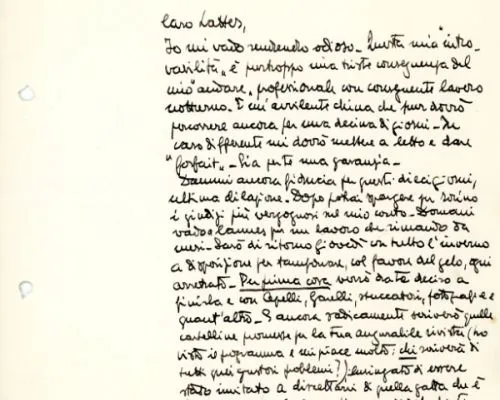 Caro Lattes,
Io mi vado rendendo odioso - Questa mia "intro-
vabilità" è purtroppo una triste conseguenza del
mio "andare" professionale con conseguente lavoro
notturno. È un'avvilente china che pur dovrò
percorrere ancora per una decina di giorni - In
caso differente mi dovrò mettere a letto e dare
"forfait" - Sia per te una garanzia -
Dammi ancora fiducia per questi dieci giorni,
ultima dilazione. Dopo potrai spargere per Torino
i giudizi più vergognosi sul mio conto - Domani
vado a Cannes per un lavoro che rimando da
mesi - Sarò di ritorno giovedì con tutto l'inverno
a disposizione per tamponare, col favore del gelo, ogni
arretrato - Per prima cosa verrò da te deciso a
finirla e con Apelli, Garelli, stuccatori, fotografie e
quant'altro - E ancora radicamente scriverò quelle
cartelline promesse per la tua augurabile rivista (ho
visto il programma e mi piace molto: chi scriverà di
tutti quei gustosi problemi?) lusingato di essere
stato invitato a di quella gatta che è